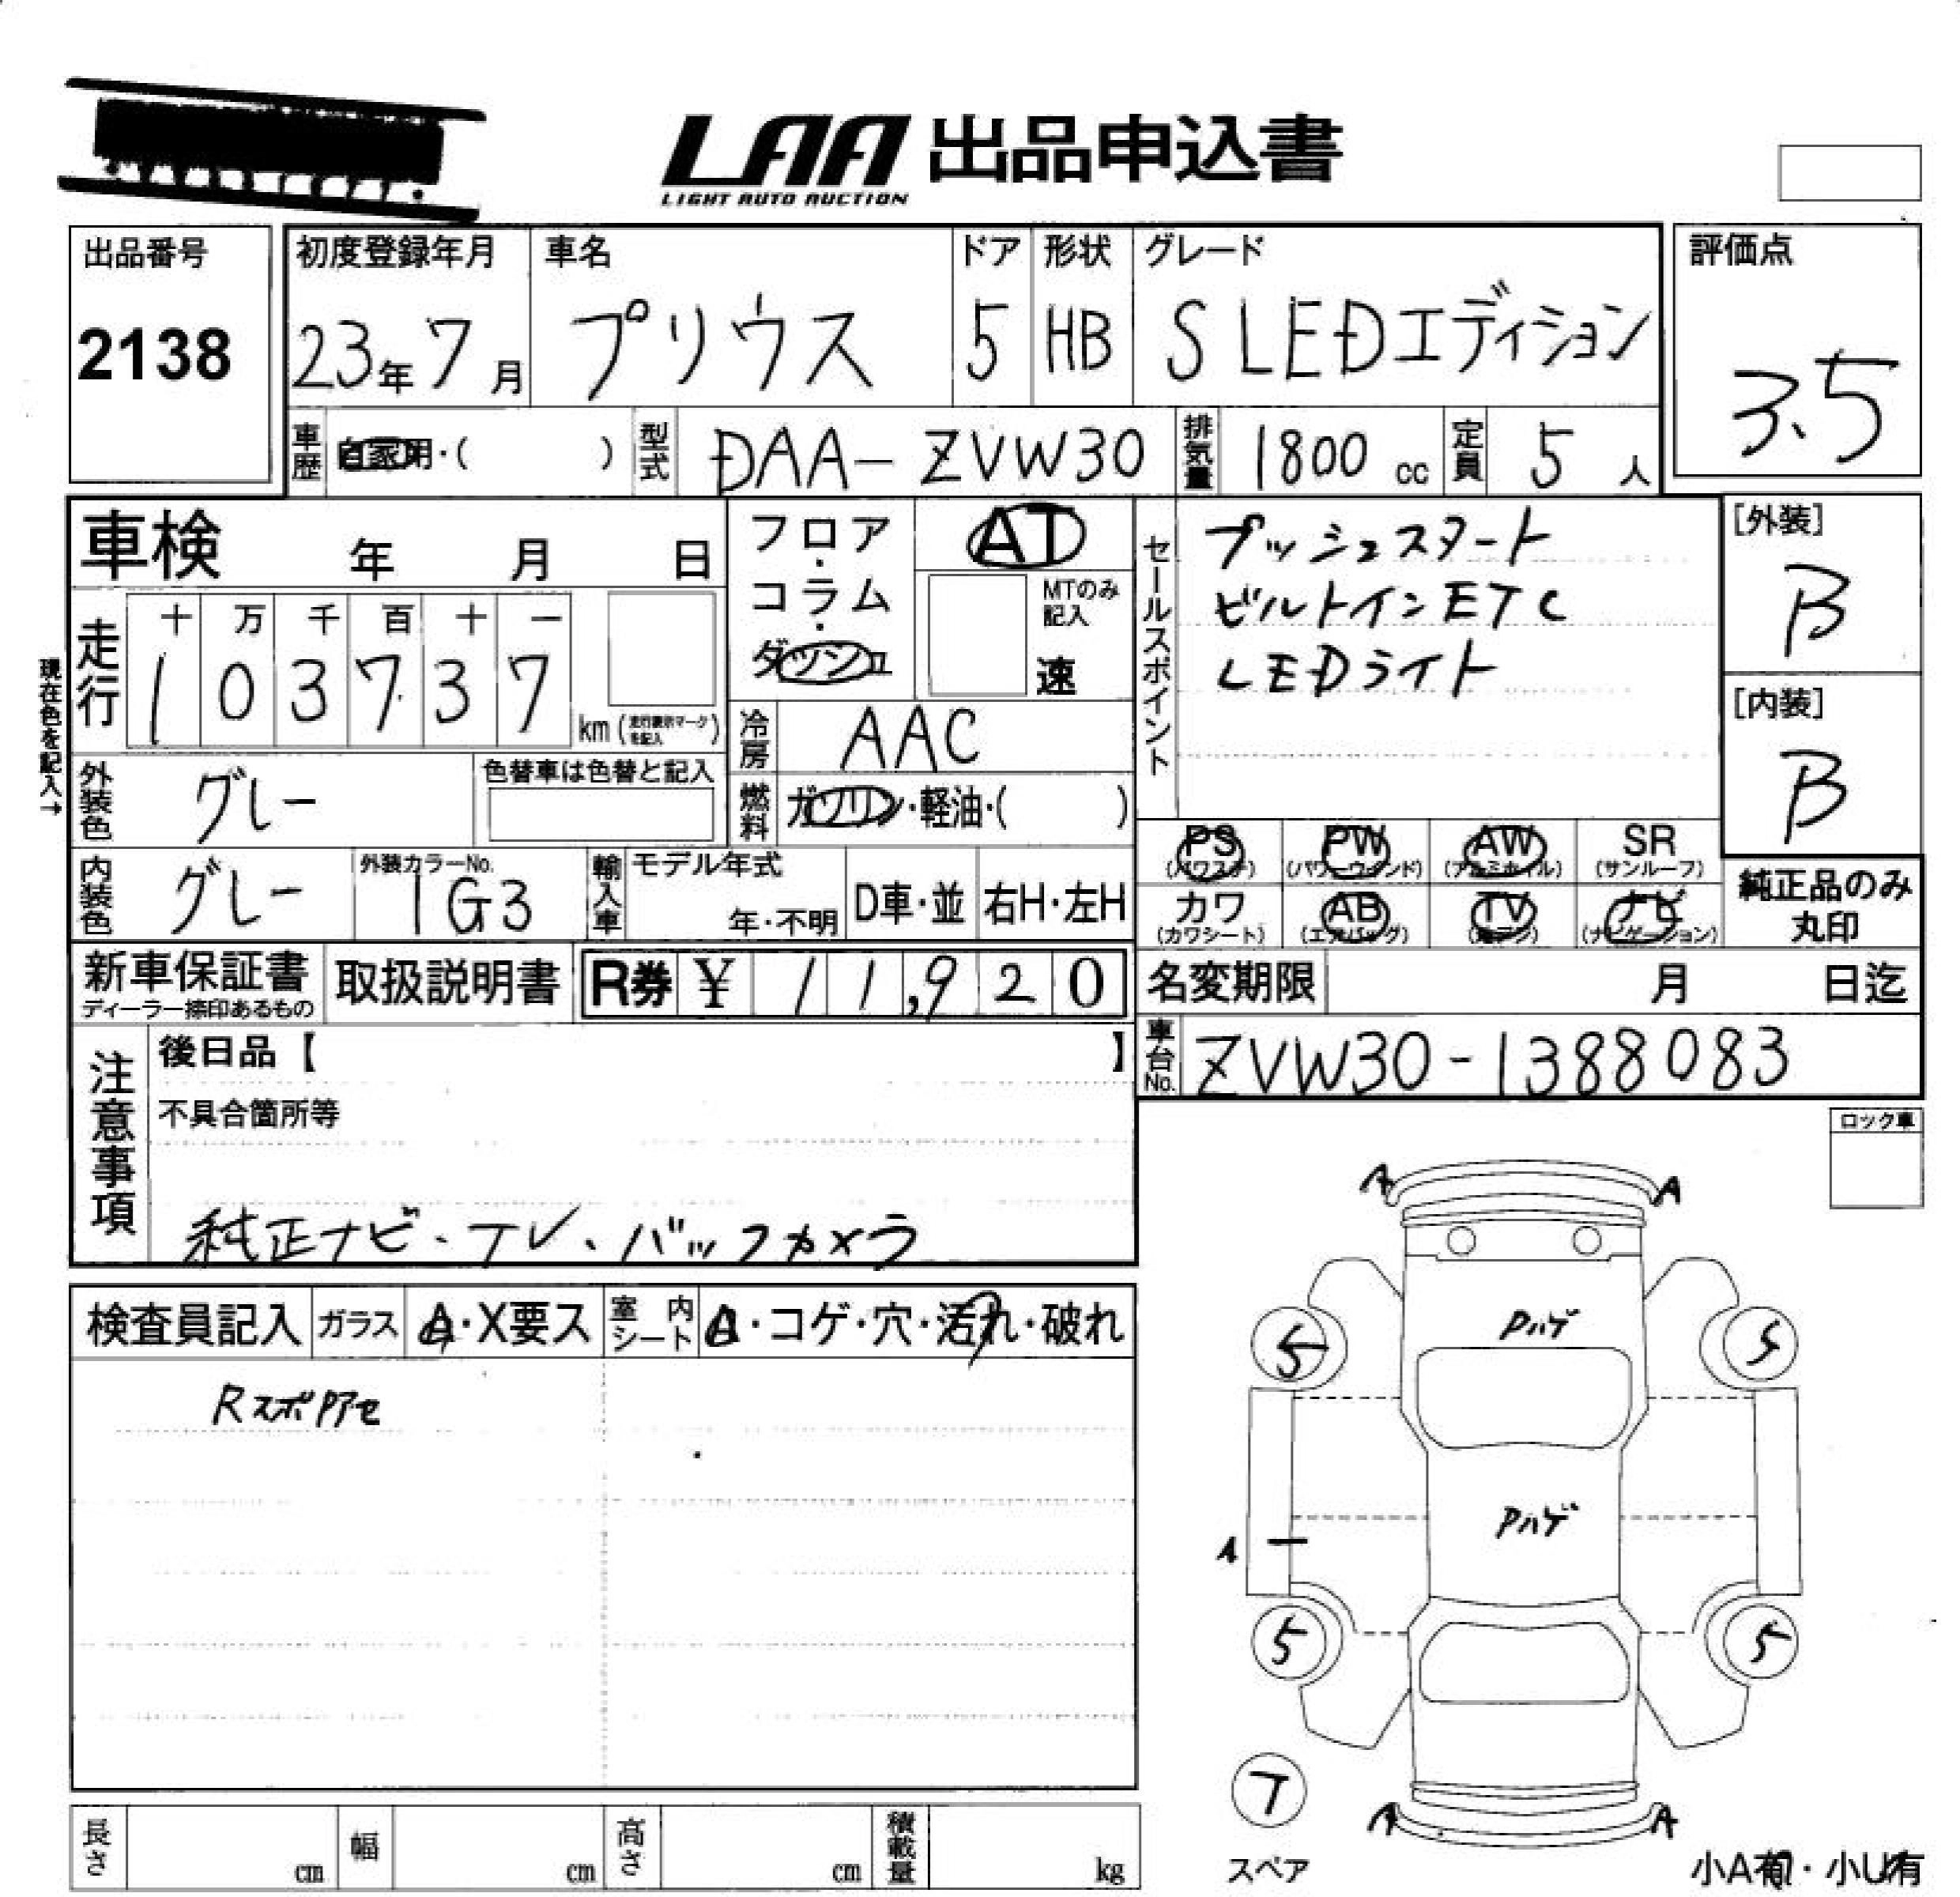 LAA 出品申込書
LIGHT AUTO AUCTION
出品番号
2138
初度登録年月
23年 7月
車名
プリウス
ドア
5
形状
HB
グレード
S LEDエディション
評価点
3.5
車歴
自家用・( )
型式
DAA-ZVW30
排気量
1800 cc
定員
5 人
車検 年 月 日
現在色を記入→
走行
十 万 千 百 十 一
1 0 3 7 3 7
km (走行表示マークを記入)
フロア・コラム・ダッシュ
AT
MTのみ記入
速
冷房
AAC
燃料
ガソリン・軽油・( )
セールスポイント
プッシュスタート
ビルトインETC
LEDライト
[外装]
B
[内装]
B
外装色
グレー
色替車は色替と記入
内装色
グレー
外装カラーNo.
1G3
輸入車
モデル年式
年・不明
D車・並
右H・左H
PS (パワステ)
PW (パワーウインド)
AW (アルミホイル)
SR (サンルーフ)
カワ (カワシート)
AB (エアバッグ)
TV
ナビ (ナビゲーション)
純正品のみ丸印
新車保証書
ディーラー捺印あるもの
取扱説明書
R券 ¥ 11,920
名変期限 月 日迄
車台No.
ZVW30-1388083
注意事項
後日品【 】
不具合箇所等
純正ナビ・TV・バックカメラ
ロック車
検査員記入
ガラス
A・X要ス
室内シート
A・コゲ・穴・汚れ・破れ
RスポPアセ
A
A
Pハゲ
5
5
Pハゲ
A
5
5
T
スペア
A
A
小A有・小U有
長さ cm
幅 cm
高さ cm
積載量 kg